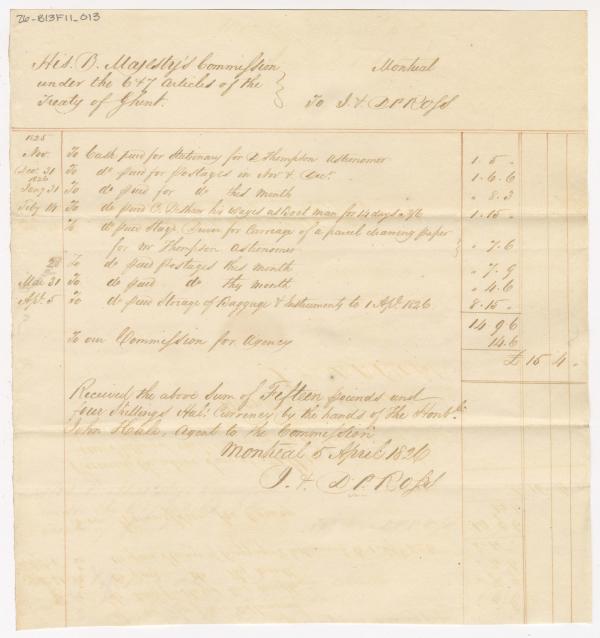 26-B13F11_013
His. B. Majesty's Commission
under the 6 & 7 Articles of the
Treaty of Ghent.
Montreal
To J. & D P. Ross
1825
Nov. To Cash paid for Stationary for D Thompson Astronomer 1. 5 "
Dec. 31 To do paid for postages in Novr & Decr. 1. 6. 6
1826
Jany 31 To do paid for do this month " 8. 3
Feby 14 To do paid C. his wages as Boat man for 14 days a 2/6 1. 15 "
To do paid Stage Driver for Carriage of a parcel drawing paper
for Mr Thompson Astronomer " 7. 6
28 To do paid postages this month " 7. 9
Mar. 31 To do paid do thy month " 4. 6
Apl. 5 To do paid Storage of Baggage & Instruments to 1 Apl. 1826 8. 15 "
14 9 6
To our Commission for Agency 14. 6
£ 15 4 "
Received the above Sum of Fifteen pounds and
four Shillings Hal. Currency by the hands of the Honble.
John Hale, Agent to the Commission
Montreal 5 April 1826
J. & D. P. Ross